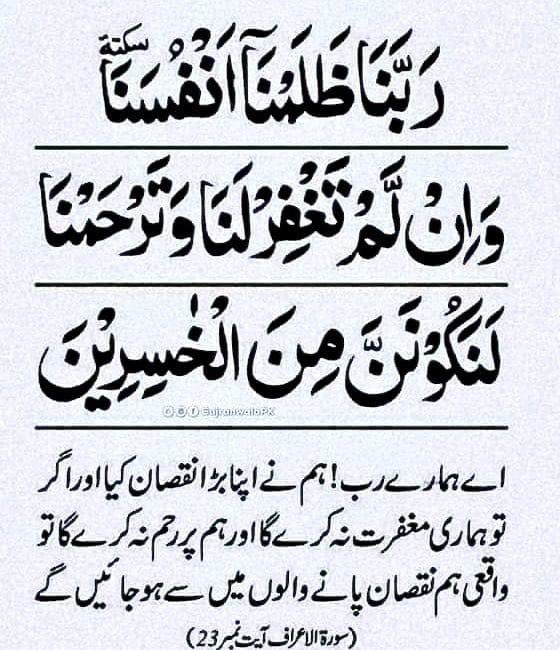 رَبَّنَا ظَلَمْنَآ اَنْفُسَنَا سكتة
وَاِنْ لَّمْ تَغْفِرْ لَنَا وَتَرْحَمْنَا
لَنَكُوْنَنَّ مِنَ الْخٰسِرِيْنَ
GujranwalaPK
اے ہمارے رب! ہم نے اپنا بڑا نقصان کیا اور اگر
تو ہماری مغفرت نہ کرے گا اور ہم پر رحم نہ کرے گا تو
واقعی ہم نقصان پانے والوں میں سے ہو جائیں گے
(سورۃ الاعراف آیت نمبر 23)